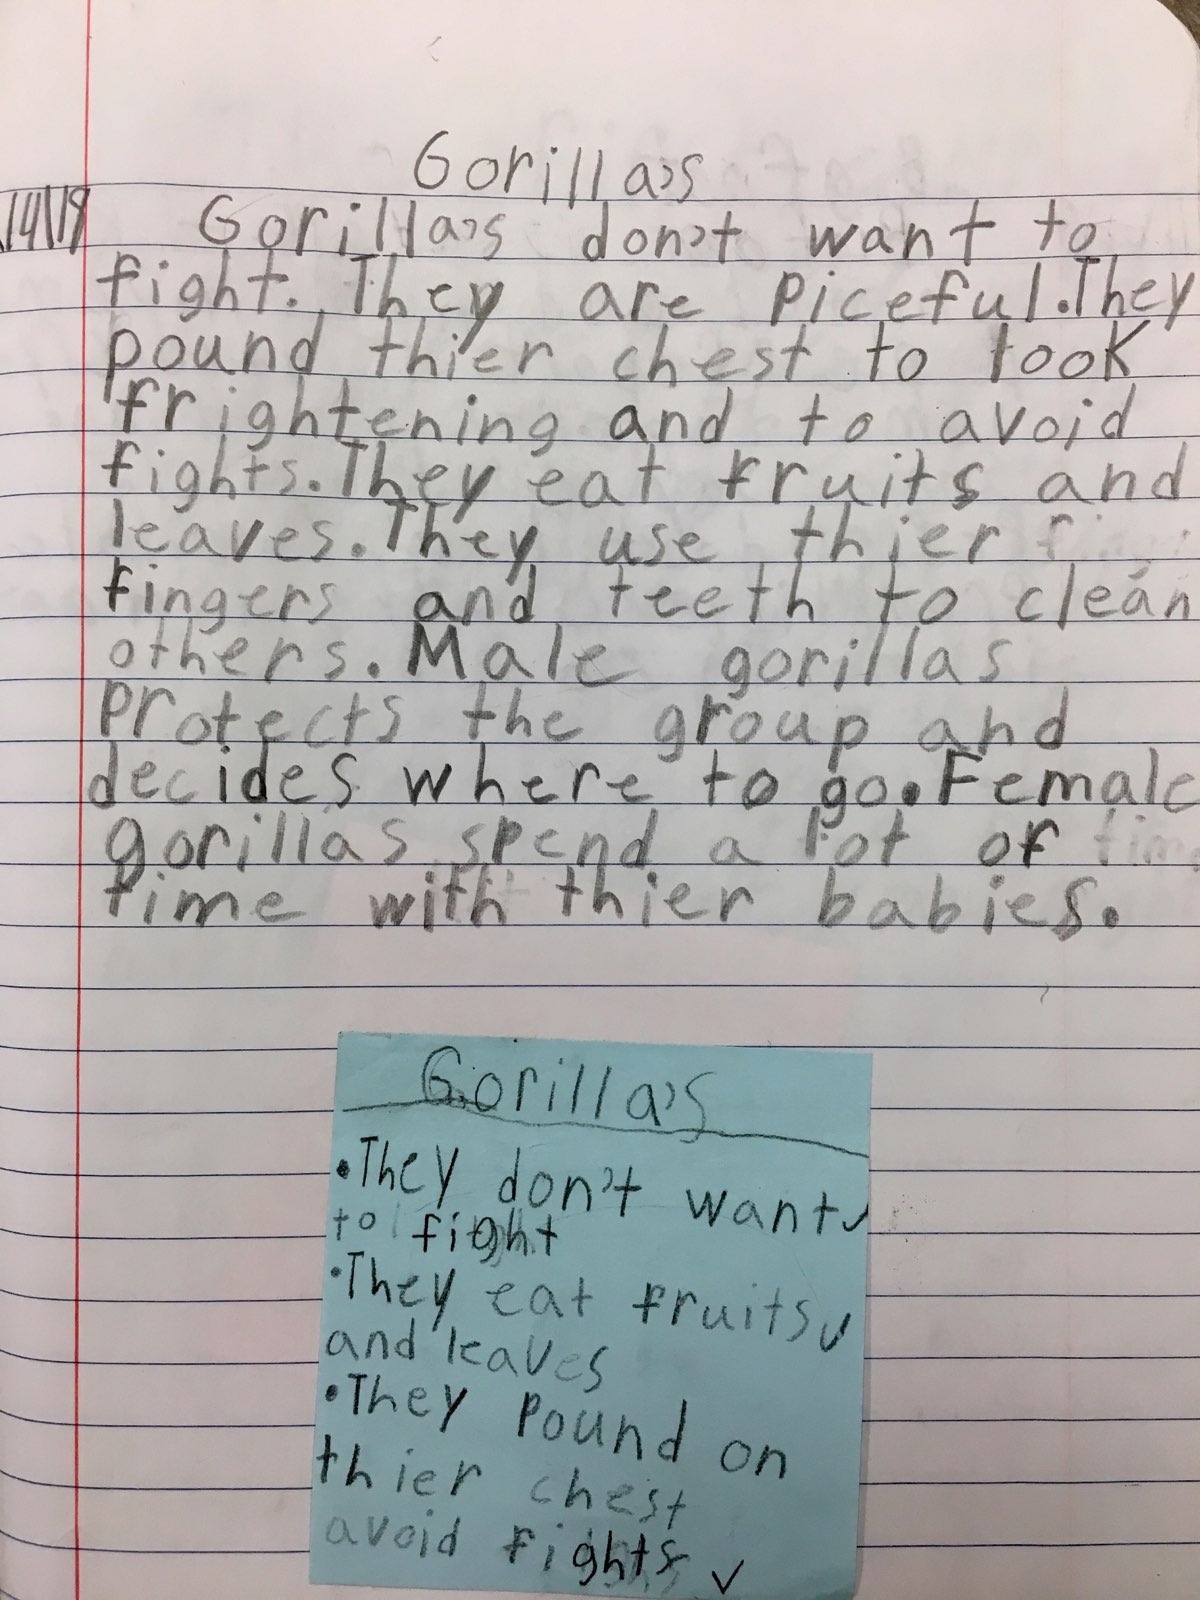 Gorilla's
14/19
Gorilla's don't want to
fight. They are piceful. They
pound thier chest to look
frightening and to avoid
fights. They eat fruits and
leaves. They use thier
fingers and teeth to clean
others. Male gorillas
protects the group and
decides where to go. Female
gorillas spend a lot of
time with thier babies.
Gorilla's
•They don't want ✓
to fight
•They eat fruits ✓
and leaves
•They pound on
thier chest
avoid fights ✓